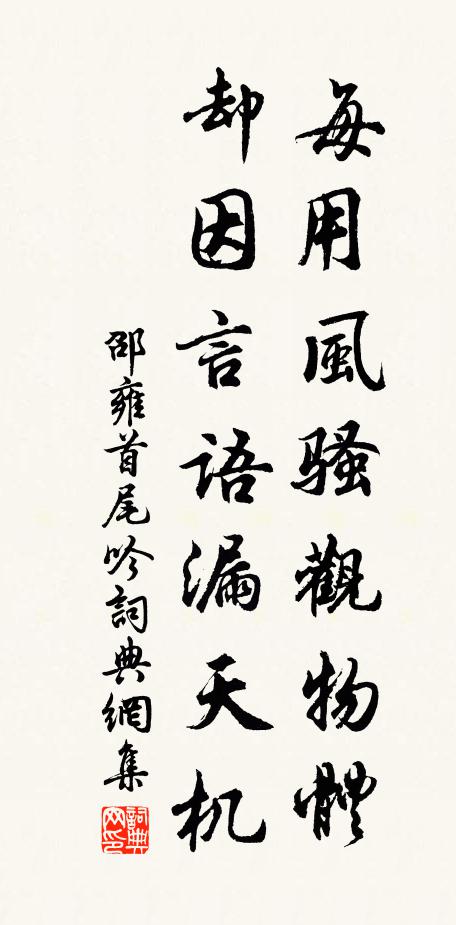 每用風骚觀物體
却因言語漏天机
邵雍首尾吟詞典網集
詞典网印